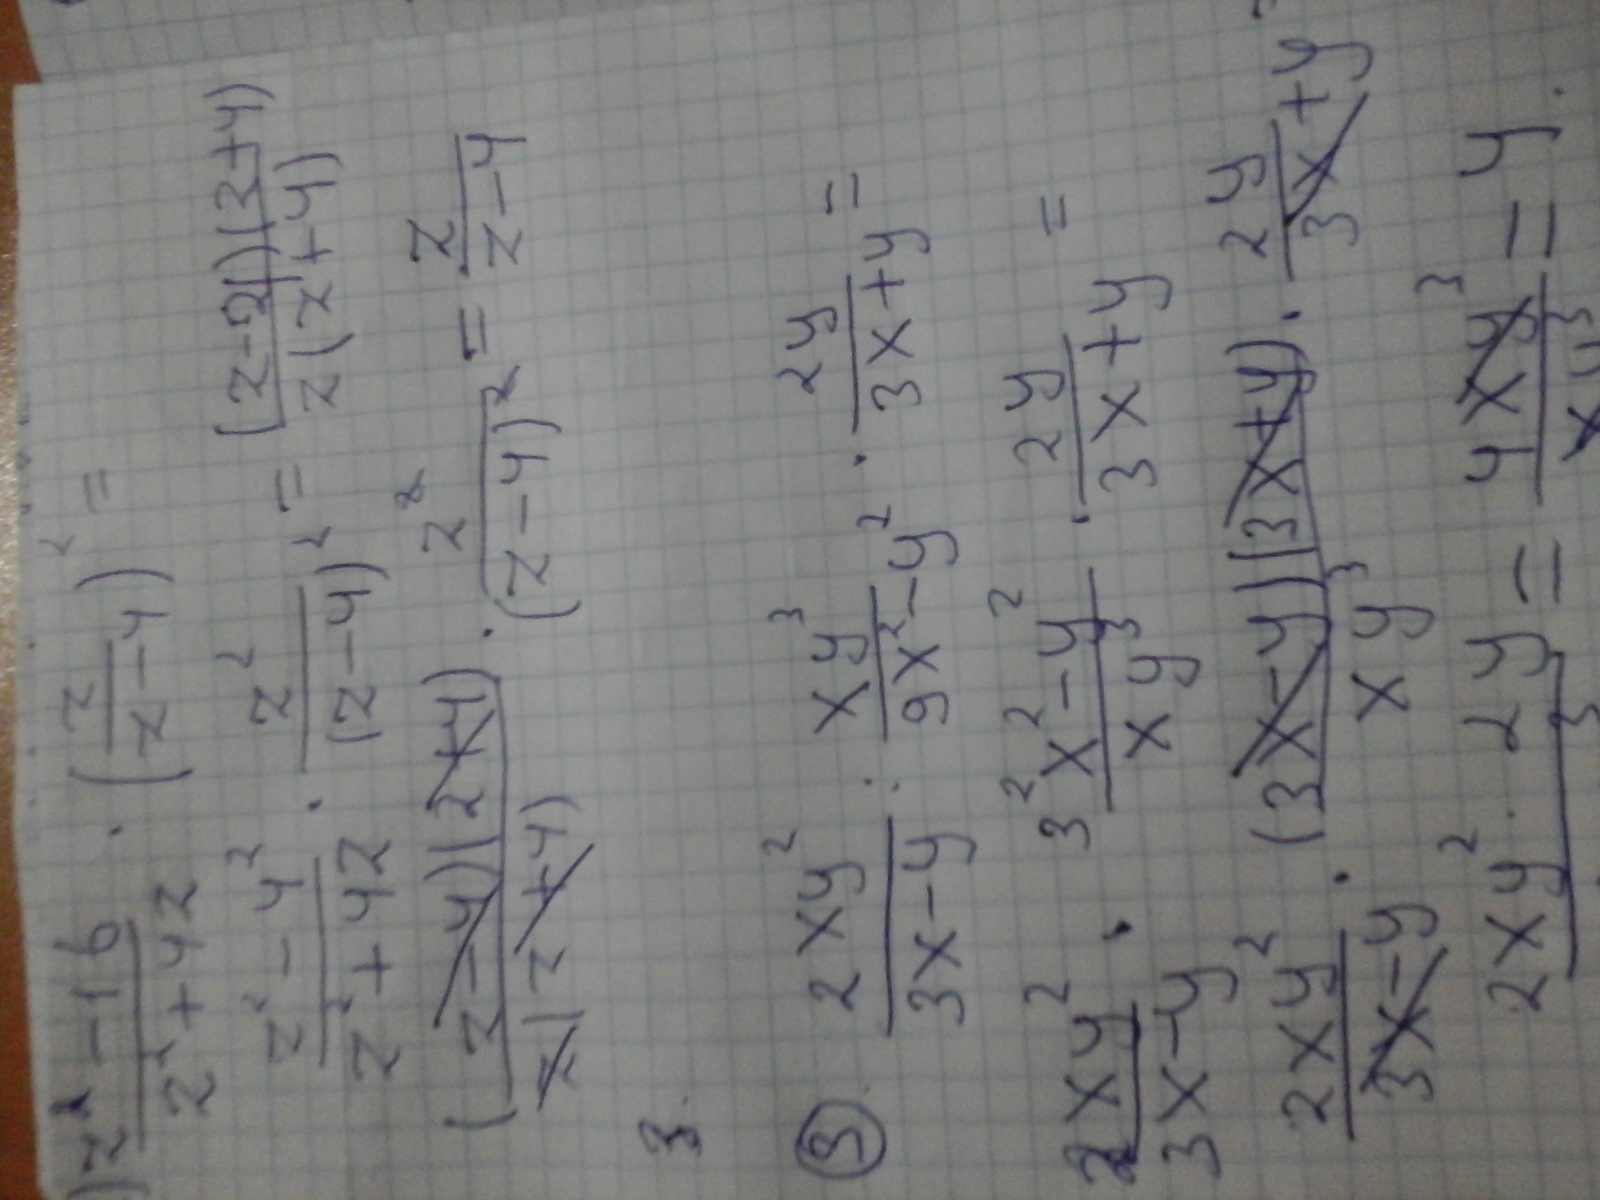 ) (z² - 16)/(z² + 4z) · (z/(z - 4))² =
(z² - 4²)/(z² + 4z) · z²/(z - 4)² = ((z - 2)(z + 4))/(z(z + 4))
((z - 4)(z + 4))/(z(z + 4)) · z²/(z - 4)² = z/(z - 4)
3.
③. 2xy²/(3x - y) : xy³/(9x² - y²) · 2y/(3x + y) =
2xy²/(3x - y) · (3²x² - y²)/(xy³) · 2y/(3x + y) =
2xy²/(3x - y) · ((3x - y)(3x + y))/(xy³) · 2y/(3x + y)
(2xy² · 2y)/(³) = 4xy³/(xy³) = 4.